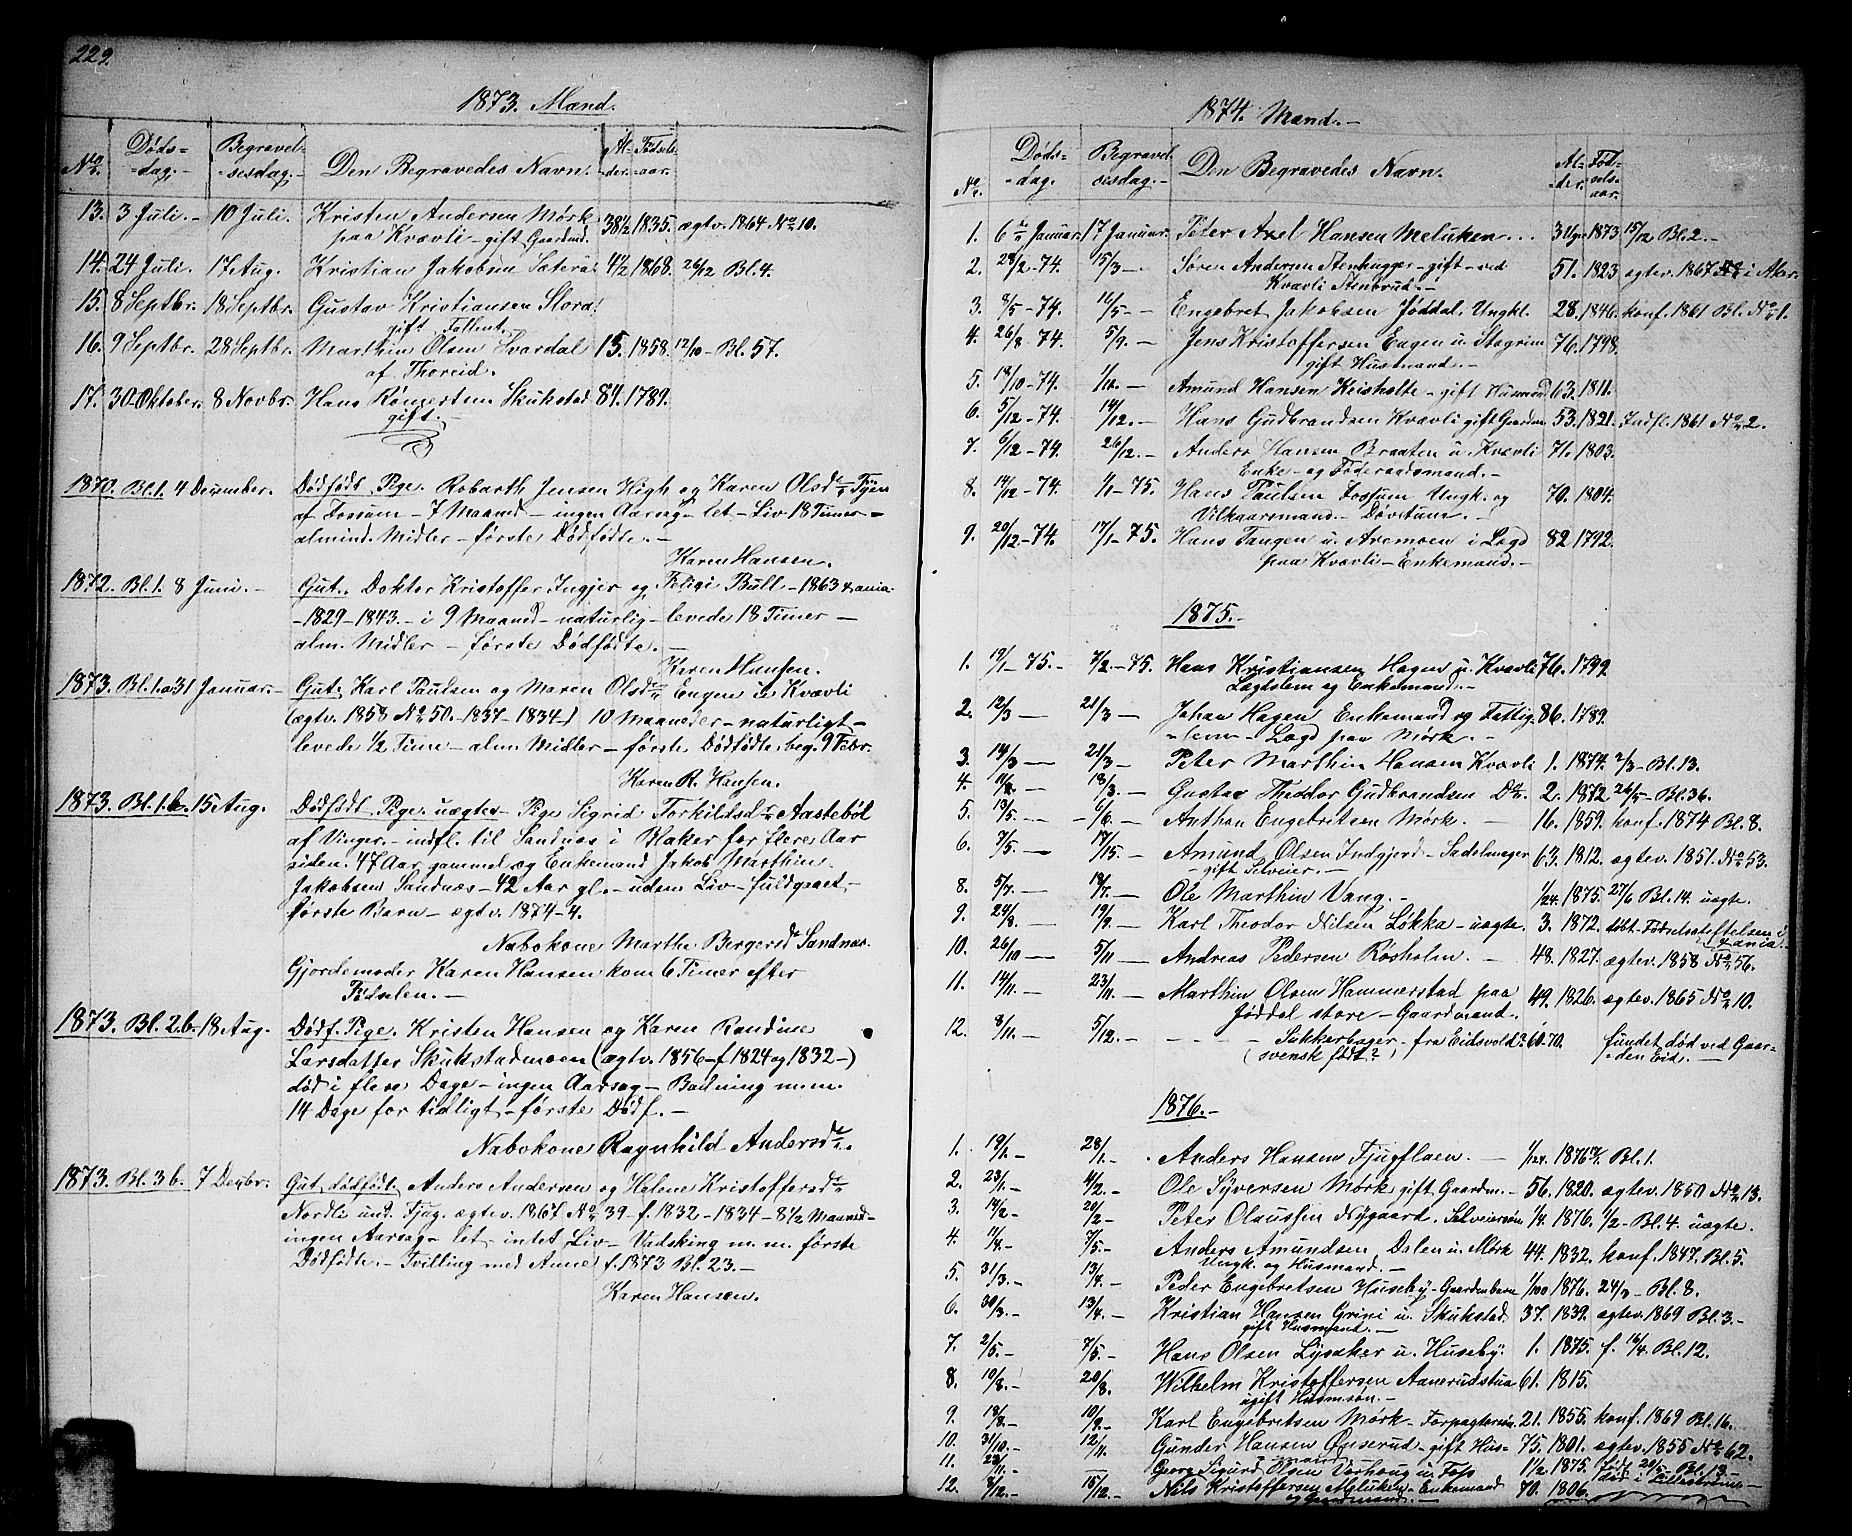 229.
1873. Mænd.
No. Døds-dag. Begravel-sesdag. Den Begravedes Navn. Al-der. Fødsels-aar.
13. 3 Juli. - 10 Juli. Kristen Andersen Mörk 38 1/2 1835. ægtv. 1864 No 10.
paa Kvævli - gift Gaardmd.
14. 24 Juli. 17 Aug. Kristian Jakobsen 4 1/2 1868. 26/12 Bl. 4.
15. 8 Septbr. 18 Septbr. Gustav Kristiansen
gift
16. 9 Septbr. 28 Septbr. Marthin Olsen 15. 1858. 12/10 - Bl. 57.
af
17. 30 Oktober. 8 Novbr. Hans Skukstad 84. 1789.
gift. -
1870. Bl. 1. 4 December. Dødfødt Pige. Robarth Jensen High og Karen Olsdr
af Fossum - 7 Maaned - ingen Aarsag - let - Liv 18 Timer -
almind. Midler - første Dødfødte. -
Karen Hansen.
1872. Bl. 1. 8 Juni. - Gut. Doktor Kristoffer Ingier og Bull - 1863
- 1829 - 1843. - i 9 Maaned - naturlig - levede 18 Timer -
alm. Midler - første Dødfødte. -
Karen Hansen.
1873. Bl. 1.a 31 Januar. - Gut. Karl Paulsen og Maren Olsdr Engen u Kvævli
(ægtv. 1858 No 50. - 1837 - 1834 -) 10 Maaneder - naturligt -
levede 1/2 Time - alm. Midler - første Dødfødte, beg. 9 Febr.
Karen R. Hansen.
1873. Bl. 1.b. 15 Aug. Dødfødt Pige. uægte - Pige Sigrid Torkildsdr Aastebøl
af Vinger. - indfl. til Sandnæs i Blaker for flere Aar
siden. 47 Aar gammel og Enkemand Jakob Marthin
Jakobsen Sandnæs - 42 Aar gl. - uden Liv - fuldgaaet. -
første Barn - ægtv. 1874 - 4.
Nabokone Marthe Bergersdr Sandnæs.
Gjordemoder Karen Hansen kom 6 Timer efter
Fødselen. -
1873. Bl. 2.b - 18 Aug. Dødf. Pige. Kristen Hansen og Karen Randine
Larsdatter Skukstadmoen (ægtv. 1856 - f. 1824 og 1832 -)
død i flere Dage - ingen Aarsag - Badning m.m.
14 Dage for tidligt - første Dødf. -
Nabokone Ragnhild Andersdr.
1873. Bl. 3 b. 7 Decbr. Gut dødfødt. Anders Andersen og Helene Kristoffersdr
Nordli und. Fjug. ægtv. 1867 No 39 - f. 1832 - 1834 - 8 1/2 Maaned -
ingen Aarsag - let - intet Liv - Vadsking m. m. første
Dødfødte. - Tvilling med Anne f. 1873 Bl. 23. -
Karen Hansen.
1874. Mænd. -
No. Døds-dag. Begravel-sesdag. - Den Begravedes Navn. Al-der. Fød-sels-aar.
1. 6te Januar. 17 Januar. Peter Axel Hansen Meluken... 3 Uger 1873 15/12 Bl. 2. -
2. 28/2 - 74. 15/3 - Søren Andersen Stenhugger - gift - ved 51. 1823 ægtev. 1867
Kvævli Stenbrud. -
3. 8/5 - 74. 16/5 - Engebret Jakobsen Jøddal. Ungkl. 28. 1846. konf. 1861 Bl. No 1.
4. 26/8 - 74. 5/9. - Jens Kristoffersen Engen u. 76. 1798.
gift Husmand. -
5. 18/10 - 74. 1/12. - Amund Hansen Krisholte - gift Husmand 63. 1811.
6. 5/12 - 74. 14/12. - Hans Gudbrandsen Kvævli gift Gaardm 53. 1821. Indfl. 1861 No 2.
7. 6/12 - 74. 26/12. - Anders Hansen Braaten u. Kvævli 71. 1803.
Enke - og Føderaadsmand. -
8. 14/12 - 74. 1/1 - 75. Hans Paulsen Fossum Ungk. og 70. 1804.
Vilkaarsmand. - Døvstum. -
9. 20/12 - 74. 17/1 - 75. Hans Tangen u. Aremoen i Lægd 82 1792.
paa Kvævli - Enkemand. -
1875. -
1. 19/1 - 75. 7/2. - 75. Hans Kristiansen Hagen u. Kvævli 76. 1799
Lægdslem og Enkemand. -
2. 12/3 - 21/3 - Johan Hagen Enkemand og Fattig 86. 1789.
- lem - i Lægd paa Mörk. -
3. 14/3 - 21/3 - Peter Marthin Hansen Kvævli 1. 1874. 2/3 - Bl. 13.
4. 18/3 - Gustav Theodor Gudbrandsen Do. 2. 1872 26/5 - Bl. 36.
5. 13/5 - - 6/6 - Anthon Engebretsen Mørk. - 16. 1859. konf. 1874 Bl. 8.
6. 7/5. - 17/15. - Amund Olsen Indgjerd - Sadelmager 63. 1812. ægtev. 1851. No 53.
- gift Selveier. -
8. 5/7. - 18/7. - Ole Marthin Vang. - 1/24. 1875. 27/6 Bl. 14. uægte.
9. 24/8. - 19/9. - Karl Theodor Nilsen Løkka - uægte. 3. 1872. døbt. Fødselsstiftelsen i
10. 26/10 - 5/11 - Andreas Pedersen Røsholm. - 48. 1827. ægtev. 1858 No 56.
11. 14/11. - 23/11. - Marthin Olsen Hammerstad paa 49. 1826. ægtev. 1865 No 10.
Jøddal store - Gaardmand. -
12. 8/11. - 5/12. - - - - - Sukkerbager - fra Eidsvold? 60-70. fundet død ved Gaar-
(svensk født?) den Eid. -
1876. -
1. 19/1. - 28/1. - Anders Hansen Fjugflaen. - 1/24. 1876 Bl. 1.
2. 23/1. - 4/2. - Ole Syversen Mørk gift Gaardm. - 56. 1820. ægtev. 1850 No 13.
3. 14/2. - 20/2 - Peter Olaussen Nygaard. Selveiersøn 1/4. 1876. 1/2 - Bl. 4. uægte.
4. 11/4. - 7/5. - Anders Amundsen Dalen u. Mørk 44. 1832. konf. 1847. Bl. 5.
Ungk. og Husmand. -
5. 31/3. - 13/4. - Peder Engebretsen Huseby - Gaardmbarn 1/100 1876. 24/3 - Bl. 8.
6. 30/3. - 13/4. - Kristian Hansen Grini u. Skukstad. 37. 1839. ægtev. 1869 Bl. 3. -
gift Husmand. -
7. 2/5. - 7/5. - Hans Olsen Lysaker u. Huseby. 1. 1875. f. 16/4. Bl. 12.
8. 10/8. - 20/8. - Wilhelm Kristoffersen Aanerudstua 61. 1815.
ugift Husmsøn. -
9. 18/8. - 10/9. - Karl Engebretsen Mørk - Forpagtersøn. 21. 1855. konf. 1869 Bl. 16.
10. 31/10. - 12/11. Gunder Hansen Ønserud - gift Hus- 75. 1801. ægtev. 1855 No 62.
- mand
11. 23/11. - Georg Sigurd Olsen Varhaug u. Foss 1 1/2. 1875.
død i Lillestrøm -
12. 8/12. - 15/12. - Nils Kristoffersen Meluken. Enkemand 70. 1806.
og Gaardmand. -